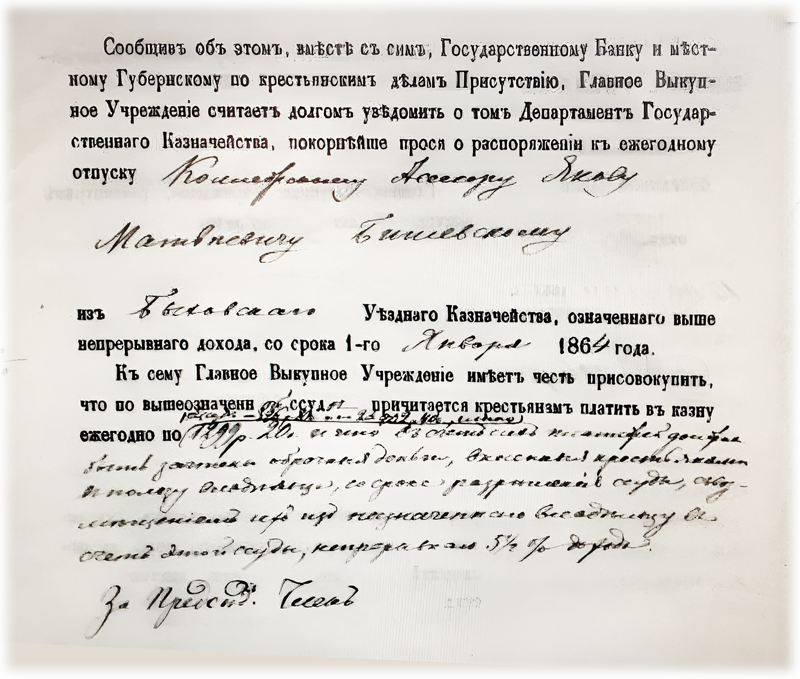 Сообщивъ объ этомъ, вмѣстѣ съ симъ, Государственному Банку и мѣст-
ному Губернскому по крестьянскимъ дѣламъ Присутствію, Главное Выкуп-
ное Учрежденіе считаетъ долгомъ увѣдомить о томъ Департаментъ Государ-
ственнаго Казначейства, покорнѣйше прося о распоряженіи къ ежегодному
отпуску Коллежскому Ассесору Якову
Матвѣевичу Бишевскому
изъ Быховскаго Уѣзднаго Казначейства, означеннаго выше
непрерывнаго дохода, со срока 1-го Января 1864 года.
Къ сему Главное Выкупное Учрежденіе имѣетъ честь присовокупить,
что по вышеозначенной ссудѣ причитается крестьянамъ платить въ казну
ежегодно по 1299 р. 20 к. и что въ счетъ сихъ платежей должны
быть зачтены оброчныя деньги, внесенныя крестьянами
въ пользу владѣльца, со срока разрѣшенія ссуды, съ воз-
мѣщеніемъ ихъ изъ назначеннаго владѣльцу въ
счетъ этой ссуды, непрерывнаго 5½ % дохода.
За Предсѣд. Членъ